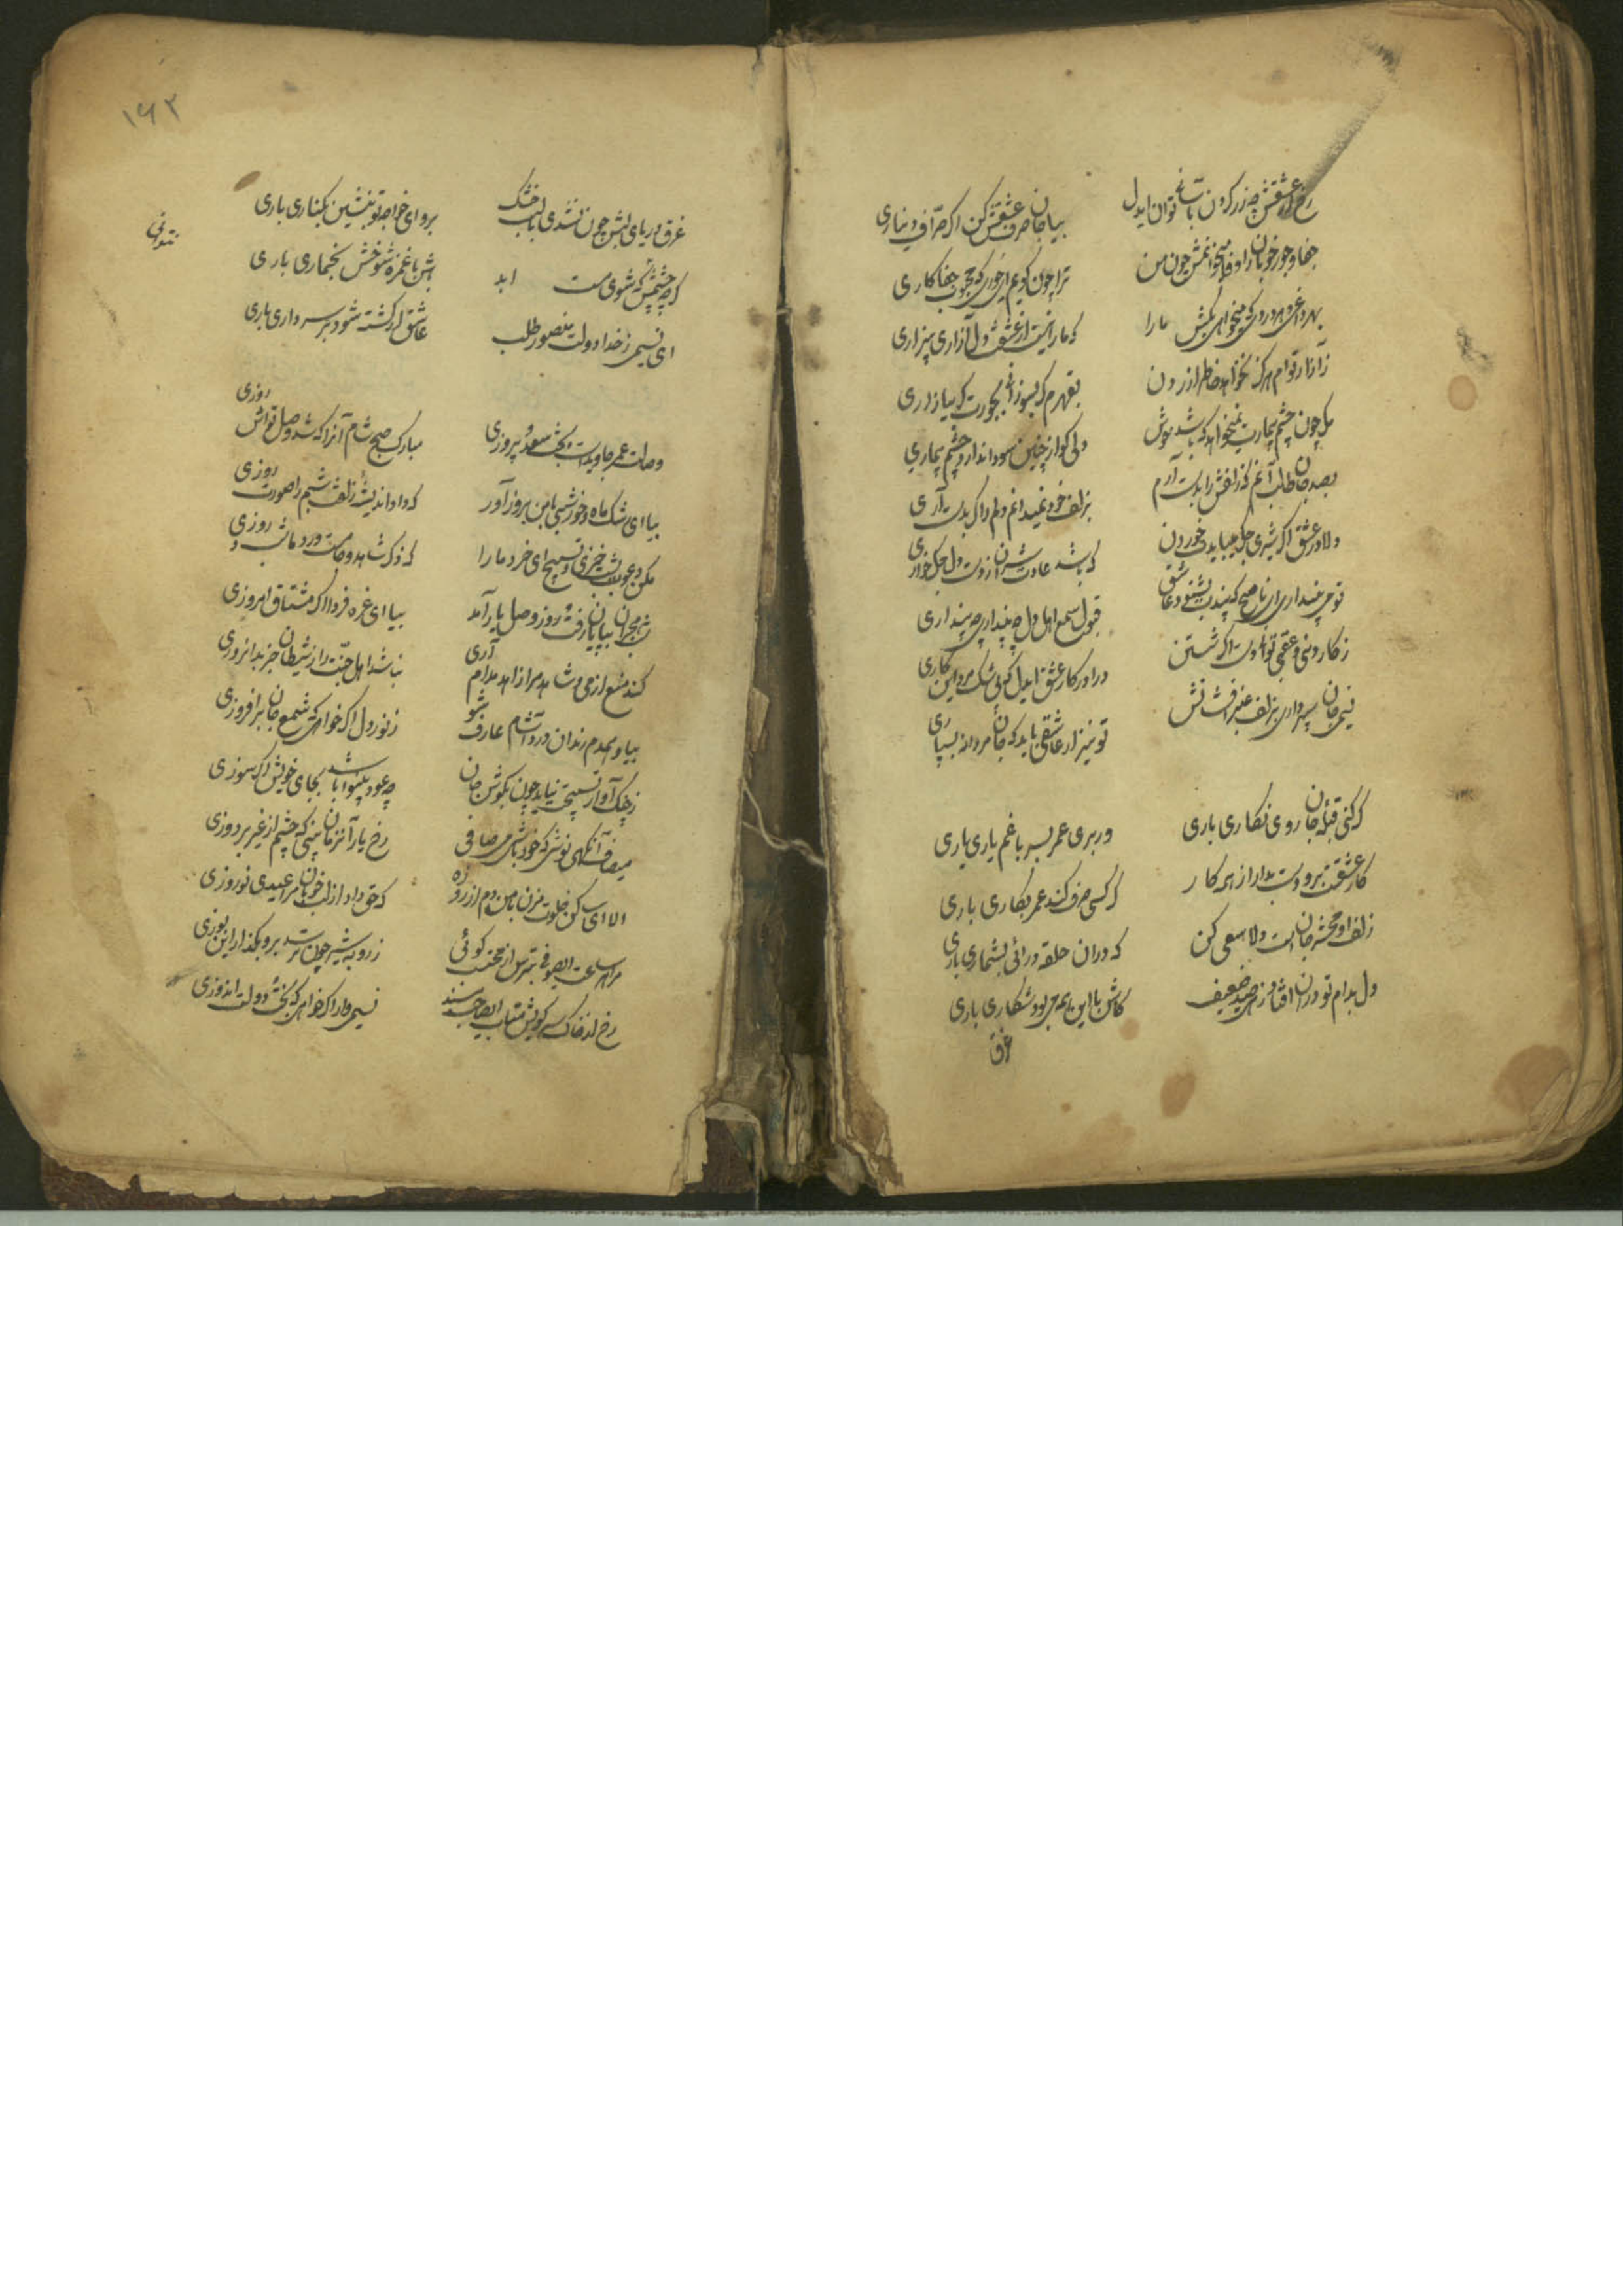 رخ از عشقش چو زر کردن بآسانی توان ایدل بیا جان صرف عشقش کن اگر صراف دیناری
جفا و جور خوبان را وفا میخوانمش چون من ترا چون گویم ای حوری که محبوب جفاکاری
بهر داغی و هر دردی که میخواهی بکش ما را که ما را نیست از عشقت دل آزاری بیزاری
ز آزار تو ام هرگز نخواهد خاطر آزردن بقهرم گر بسوزانی بجورت گر بیازاری
دلم چون چشم بیمارت نمیخواهد که باشد خوش ولی کو از چنین سودا ندارد چشم بیماری
بصد جان طالب آنم که زلفش را بدست آرم بزلف خود نمیدانم دلم را کی بدست آری
دلا در عشق اگر شیری جگر میباید خوردن که باشد عادت شیران از دست دل جگر خواری
تو میپنداری ای ناصح که پندت بشنود عاشق قبول سمع اهل دل چه پنداری چه پنداری
ز کار دینی و عقبی تو را دست اگر شستن درآ در کار عشق ایدل که بی شک مرد این کاری
نسیمی جان سپرداری بزلف عنبر افشانش تو نیز ار عاشقی باید که جان مردانه بسپاری
گر کنی قبله جان روی نگاری باری ور بری عمر بسر با غم یاری باری
کار عشقست برو دست بدار از همه کار گر کسی صرف کند عمر بکاری باری
زلف او محشر جان است دلا سعی کن که در آن حلقه درآئی بشماری باری
دل بدام تو در افتاد زهی صید ضعیف کاش با این همه می بود شکاری باری
غرق
۱۶۳
غرق دریای لبش چون نشدی با لب خشک برو ای خواجه تو بنشین بکناری باری
گر چه چشمش نشوی مست ابد باش با غمزه شوخش بخماری باری
ای نسیمی ز خدا دولت منصور طلب عاشق ار کشته شود بر سر داری باری
وصالت عمر جاوید است و بخت سعد و پیروزی مبارک صبح و شام آنرا که شد وصل تواش روزی
بیا ای رشک ماه و خور شبی با من بروز آور که داد اندیشه زلفت شبم را صورت روزی
مکن دعوت بشب خیزی و تسبیح ای خرد ما را که ذکر شاهد و می است ورد ما شب و روزی
شب هجران بپایان رفت و روز وصل یار آمد بیا ای غره فردا اگر مشتاق امروزی
کند منع از می و شاهد مرا زاهد مدام آری نباشد اهل جنت را ز شیطان جز بد آموزی
بیا و همدم رندان درد آشام عارف شو ز نور دل اگر خواهی که شمع جان برافروزی
ز چنگ آواز تسبیحت نیاید چون بگوش جان چه عود بینوا باشد بجای خویش اگر سوزی
می صاف آنگهی نوشی که خود باشی می صافی رخ یار آنزمان بینی که چشم از غیر بردوزی
الا ای ساکن خلوت مزن با من دم از روزه که حق داد از لب خوبان مرا عیدی و نوروزی
مرا هر ساعت ای صوفی بترس از محتسب گوئی ز روبه شیر چون ترسد برو بگذار این یوزی
رخ از خاک سر کویش متاب ای صاحب مسند نسیمی وار اگر خواهی که بخت و دولت اندوزی